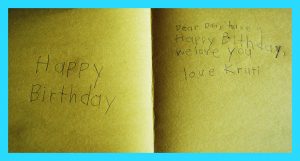 Happy
Birthday
Dear
Happy Birthday,
we love you
love Kruti